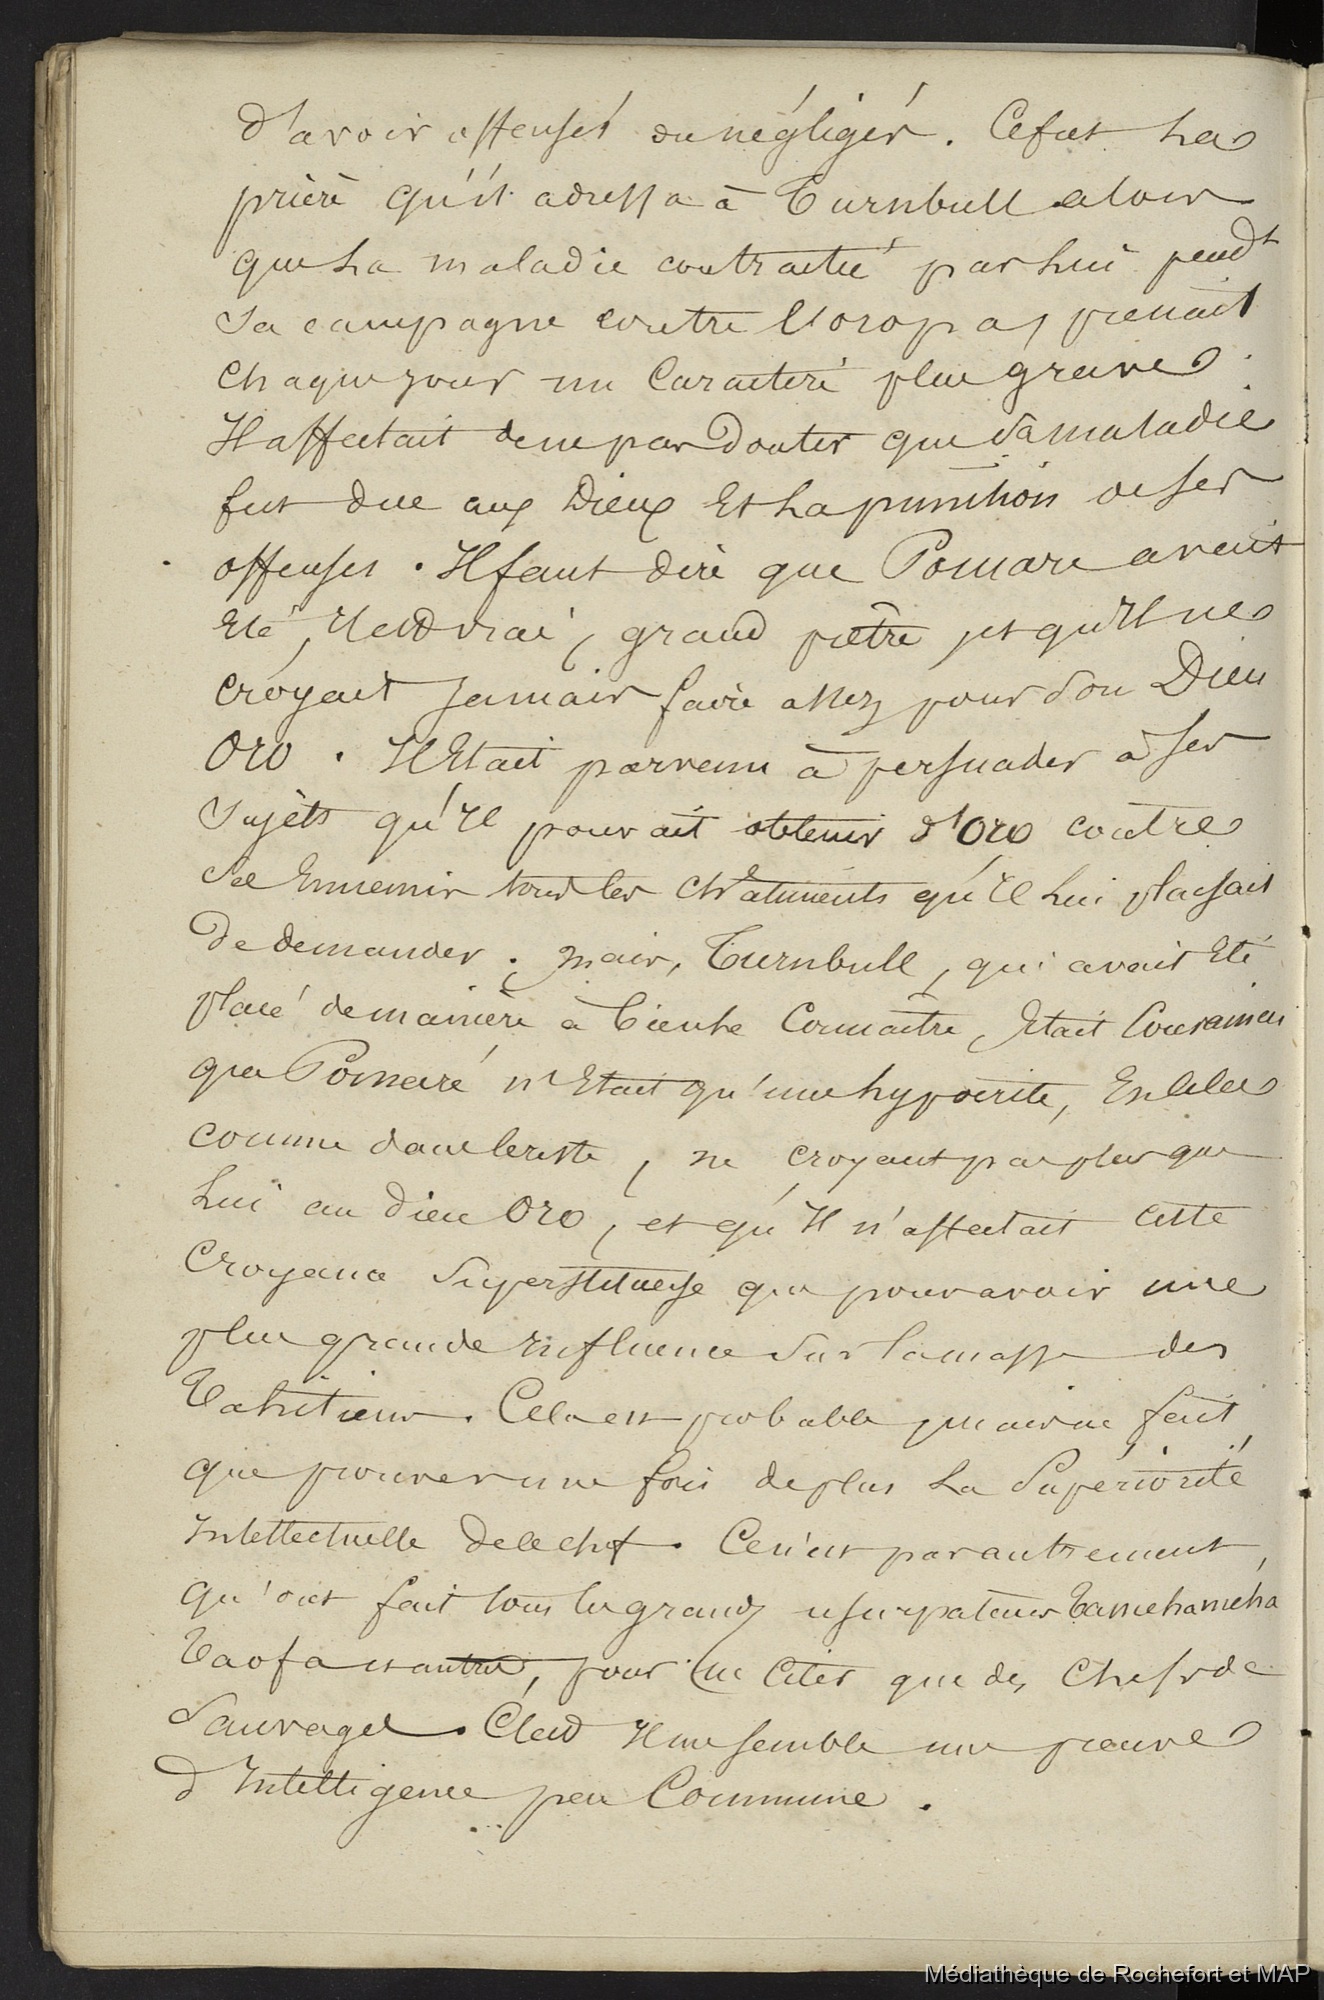 d'avoir offensés ou négligés. Ce fut la
prière qu'il adressa à Turnbull alors
que la maladie contractée par lui pendt
sa campagne contre Noropaj prenait
chaque jour un caractère plus grave.
Il affectait de ne pas douter que sa maladie
fut due aux Dieux et la punition de ses
offenses. Il faut dire que Pomare avait
été, il est vrai, grand prêtre, et qu'il ne
croyait jamais faire assez pour son Dieu
Oro. Il était parvenu à persuader à ses
sujets qu'il pouvait obtenir d'Oro contre
ses ennemis tous les châtiments qu'il lui plaisait
de demander. mais, Turnbull, qui avait été
placé de manière à bien le connaître, était convaincu
que Pomaré n'était qu'un hypocrite, en cela
comme dans le reste, ne croyant pas plus que
lui au dieu Oro, et qu'il n'affectait cette
croyance superstitieuse que pour avoir une
plus grande influence sur la masse des
Tahitiens. Cela est probable, mais ne fait
que prouver une fois de plus la supériorité
intellectuelle de ce chef. Ce n'est pas autrement,
qu'ont fait tous les grands usurpateurs Tamehameha
Taofa et autres, pour ne citer que des chefs de
sauvages. C'est il me semble une preuve
d'intelligence peu commune.
Médiathèque de Rochefort et MAP